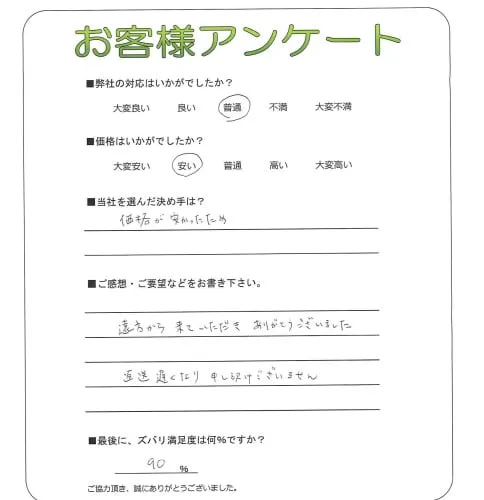 お客様アンケート
■弊社の対応はいかがでしたか？
大変良い 良い 普通 不満 大変不満
■価格はいかがでしたか？
大変安い 安い 普通 高い 大変高い
■当社を選んだ決め手は？
価格が安かったため
■ご感想・ご要望などをお書き下さい。
遠方から来ていただきありがとうございました
返送遅くなり申し訳ございません
■最後に、ズバリ満足度は何％ですか？
90 %
ご協力頂き、誠にありがとうございました。